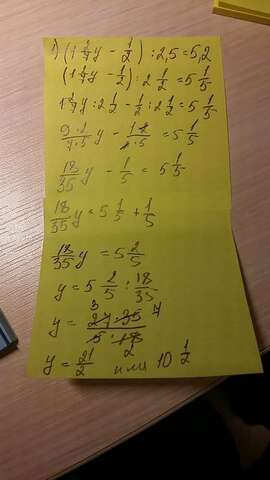 1) (1 2/7 y - 1/2) : 2,5 = 5,2
(1 2/7 y - 1/2) : 2 1/2 = 5 1/5
1 2/7 y : 2 1/2 - 1/2 : 2 1/2 = 5 1/5
18/35 y - 1/5 = 5 1/5
18/35 y = 5 1/5 + 1/5
18/35 y = 5 2/5
y = 5 2/5 : 18/35
y = 27 · 35 / 5 · 18
y = 21/2 или 10 1/2